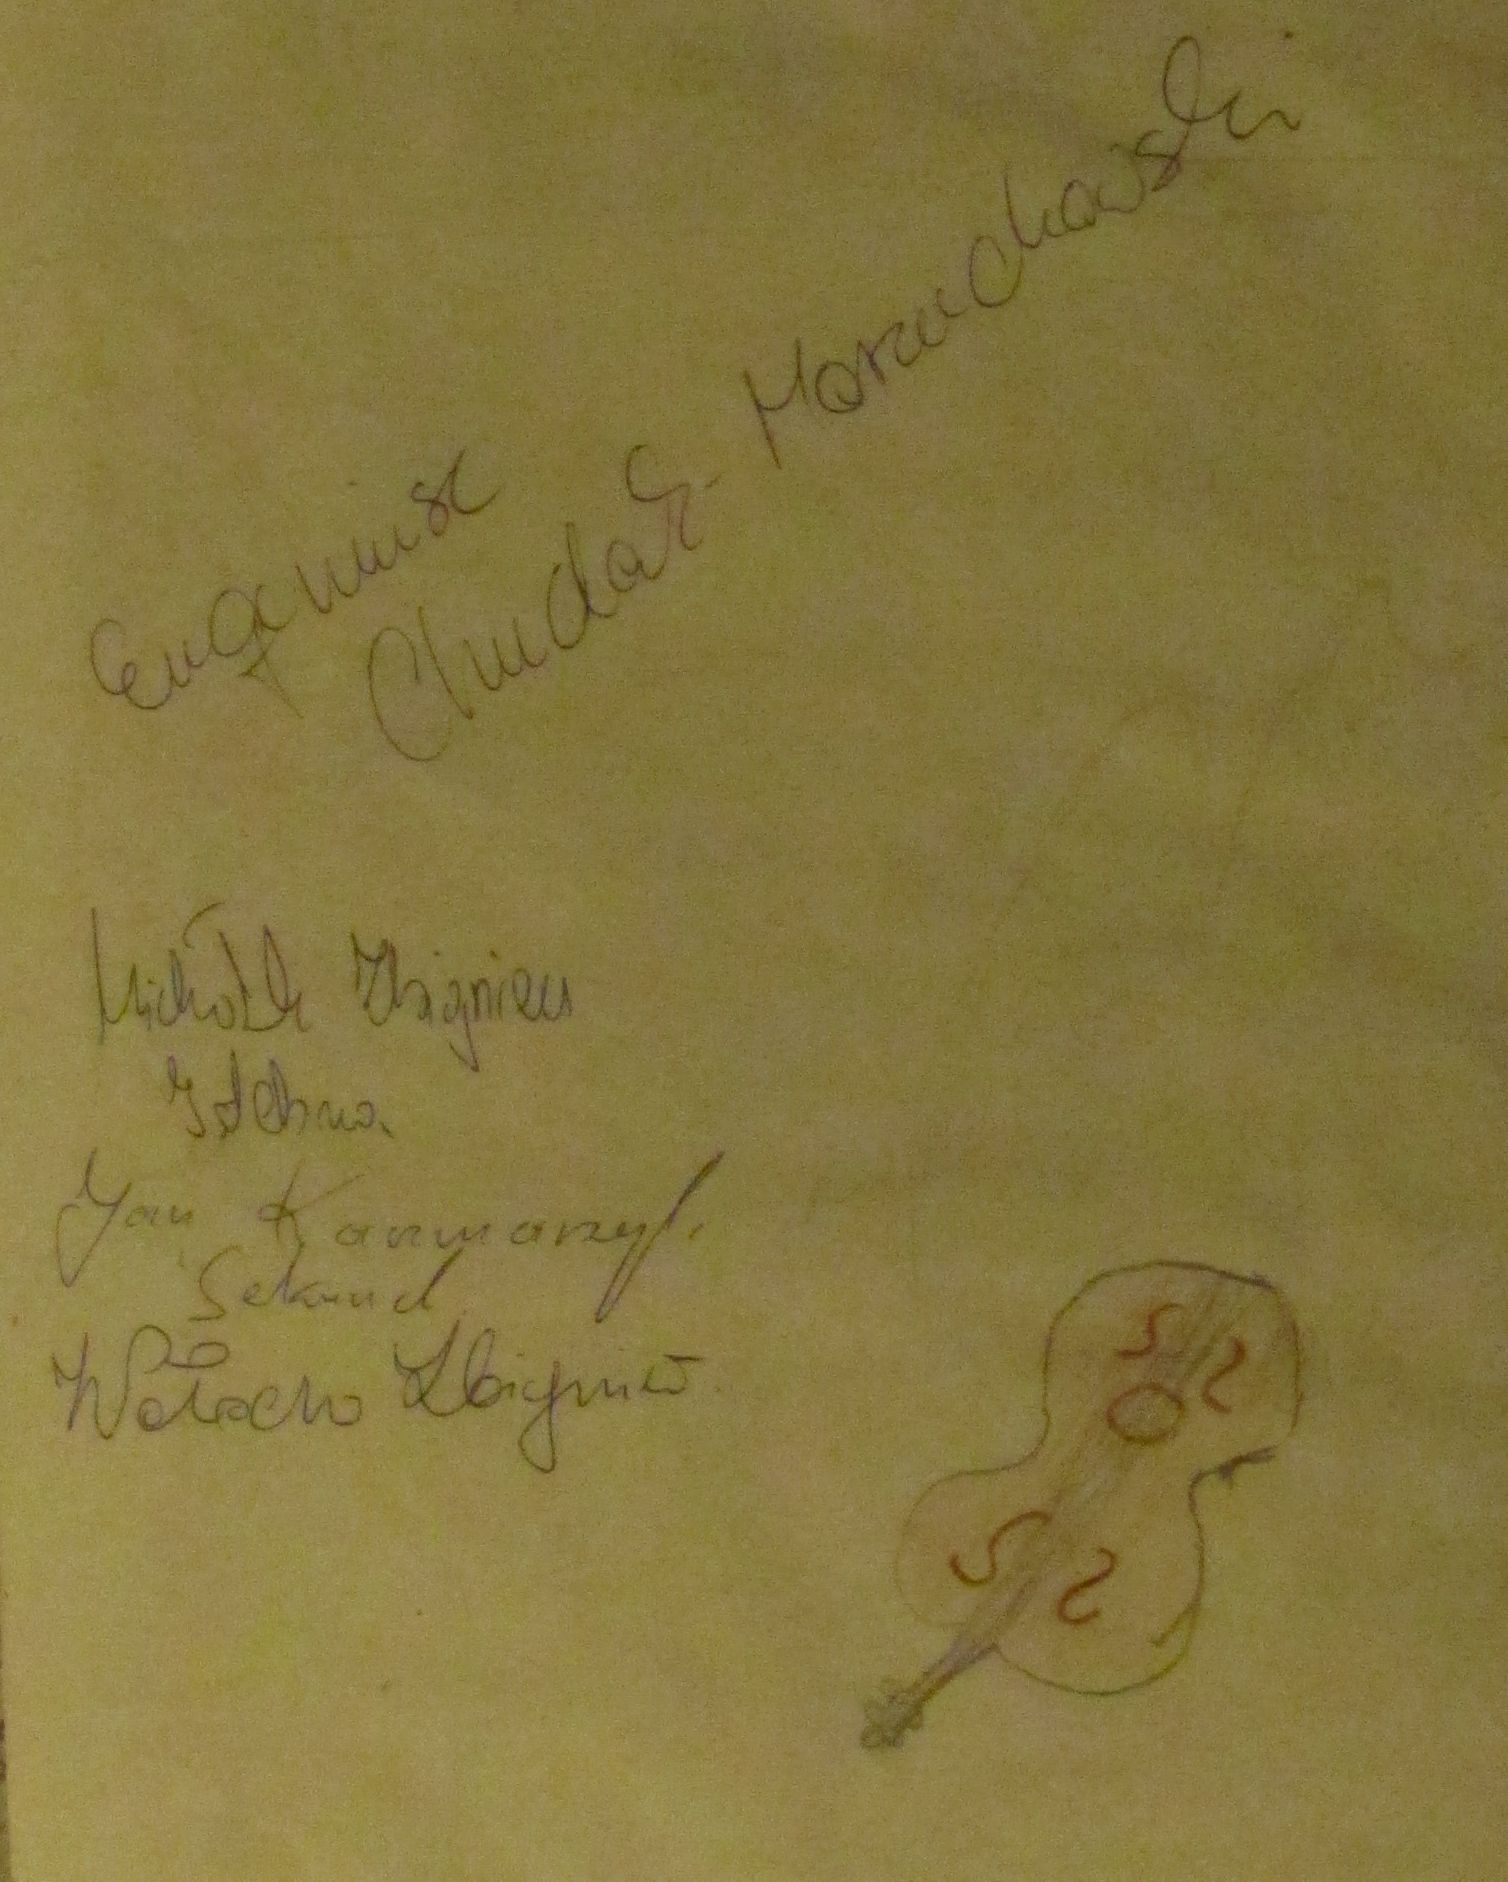 Eugeniusz
Chudak - Morzuchowski
Michałek Zbigniew
Istebna
Jan Kaczmarzyk
Sekund
Wałach Zbigniew